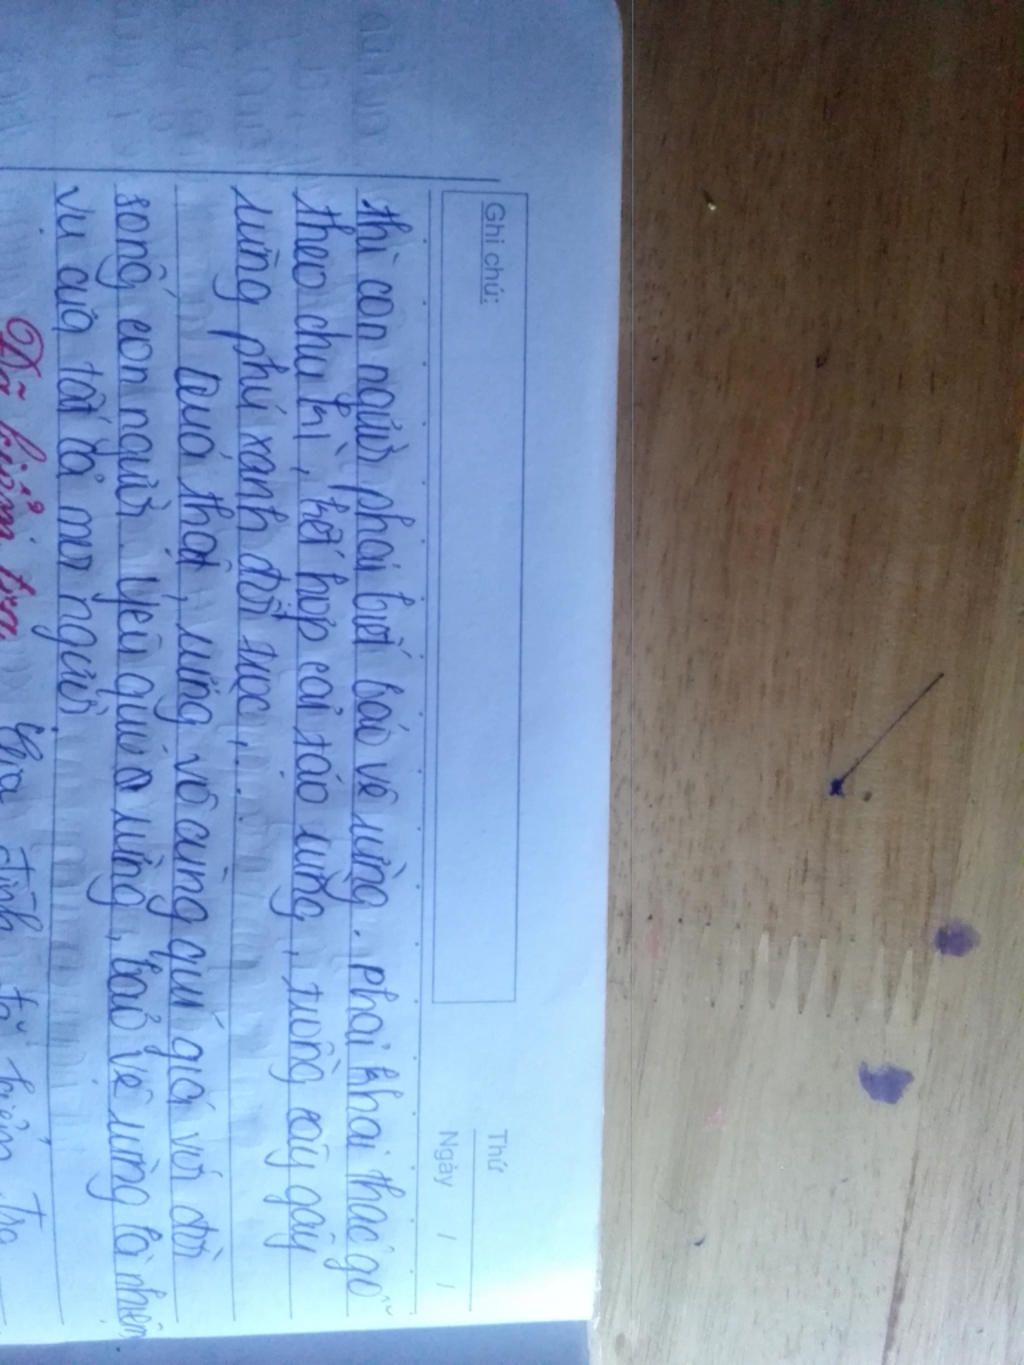 Ghi chú:
Thứ
Ngày / /
thì con người phải biết bảo vệ rừng. phải khai thác gỗ
theo chu kì, kết hợp cải tạo rừng, trồng cây gây
rừng phủ xanh đồi trọc,...
Quả thật, rừng vô cùng quí giá với đời
sống con người. Yêu quí rừng, bảo vệ rừng là nhiệm
vụ của tất cả mọi người.
Đã kiểm tra